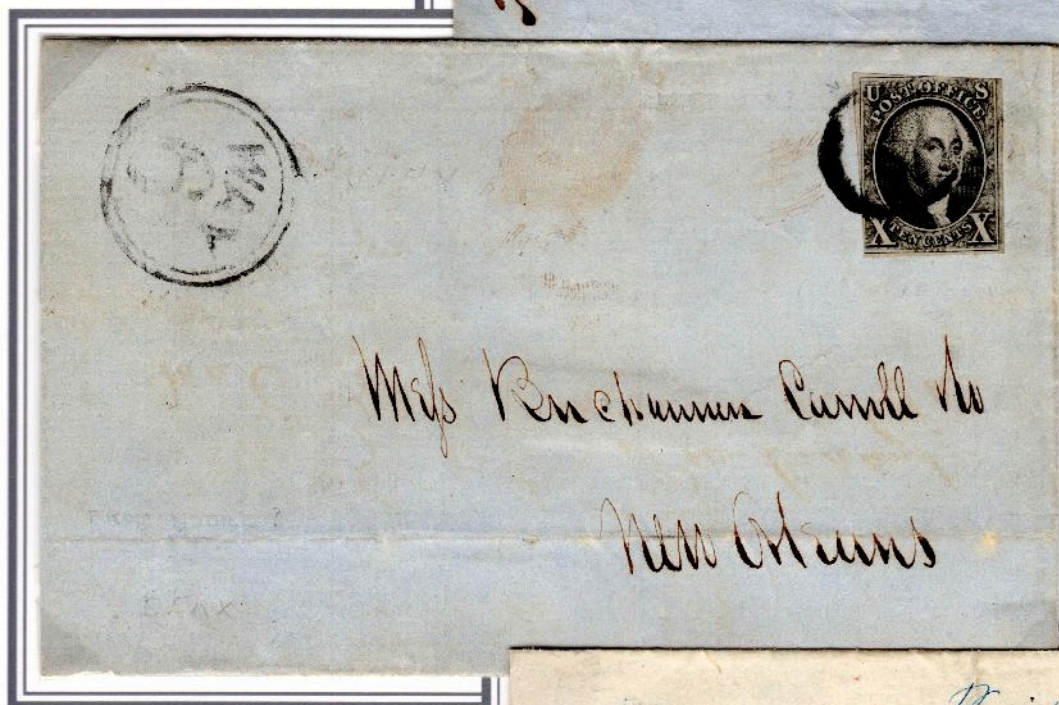 U S
POST OFFICE
X TEN CENTS X
MAY
Mess Buchannen Carroll & Co
New Orleans